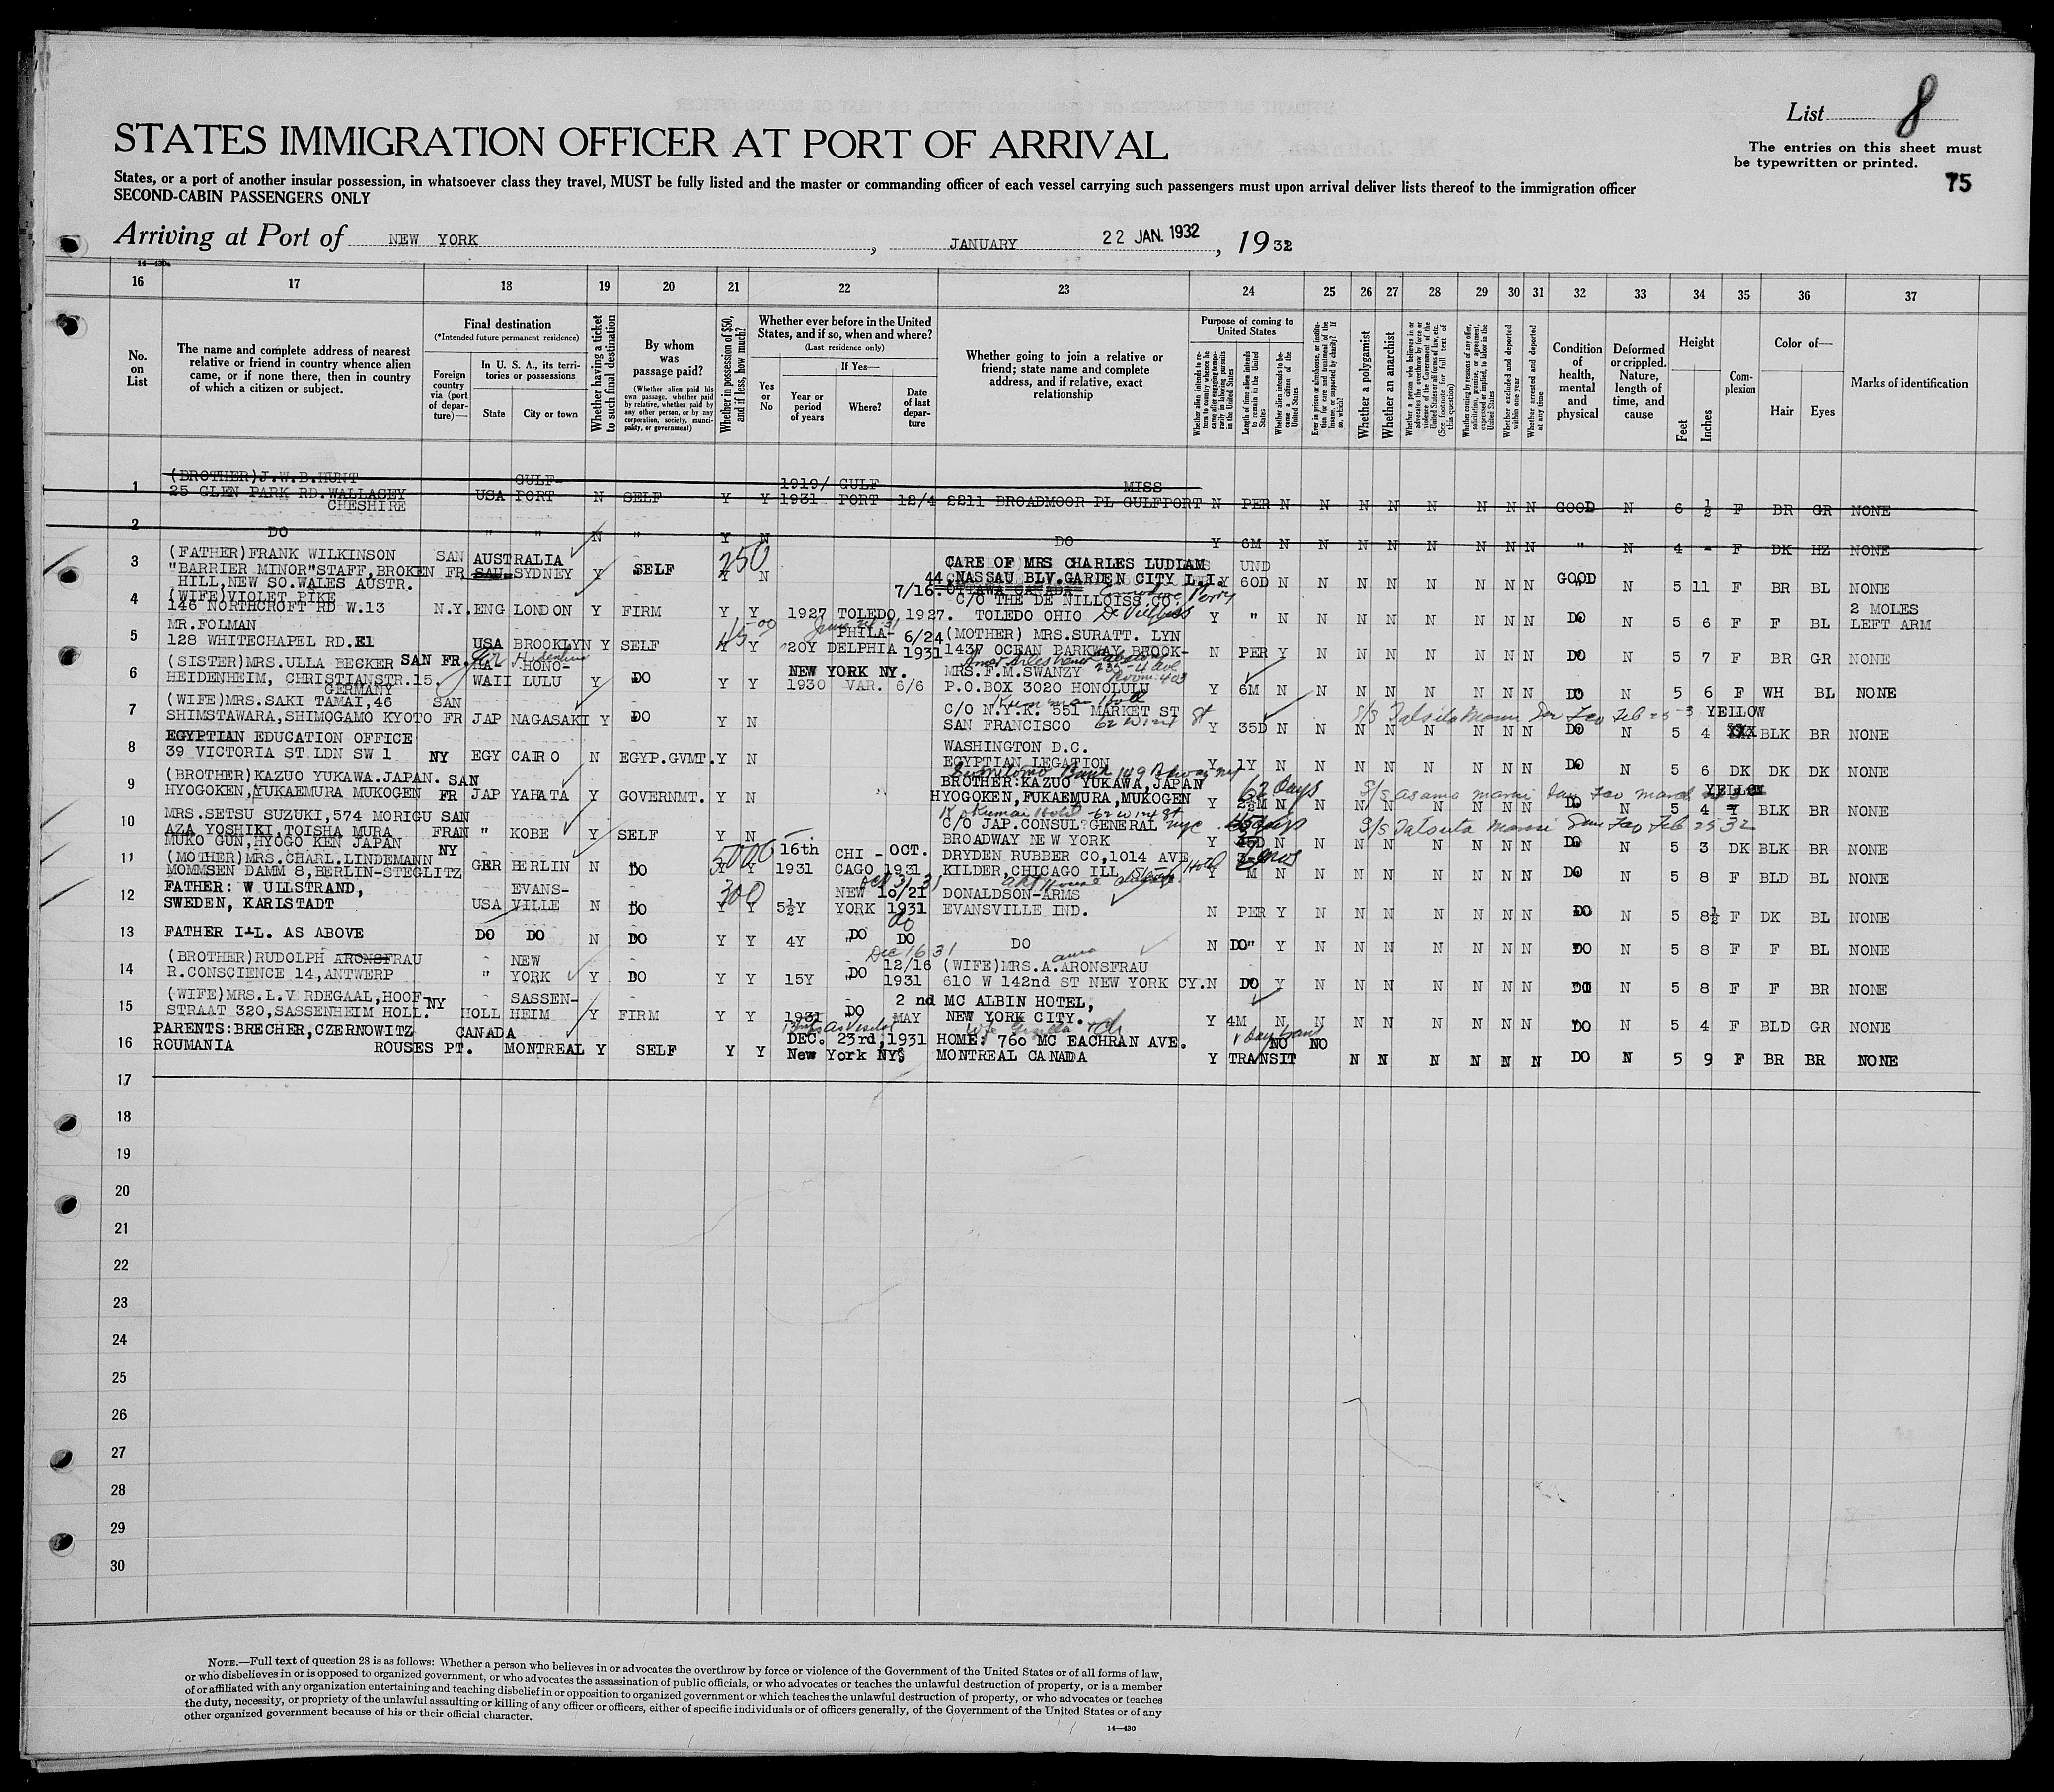 List 8
The entries on this sheet must
be typewritten or printed.
75
STATES IMMIGRATION OFFICER AT PORT OF ARRIVAL
States, or a port of another insular possession, in whatsoever class they travel, MUST be fully listed and the master or commanding officer of each vessel carrying such passengers must upon arrival deliver lists thereof to the immigration officer
SECOND-CABIN PASSENGERS ONLY
Arriving at Port of NEW YORK, JANUARY 22 JAN. 1932, 1932
16 17 18 19 20 21 22 23 24 25 26 27 28 29 30 31 32 33 34 35 36 37
No. on List
The name and complete address of nearest relative or friend in country whence alien came, or if none there, then in country of which a citizen or subject.
Final destination
(*Intended future permanent residence)
Foreign country via (port of departure)—
In U. S. A., its territories or possessions
State
City or town
Whether having a ticket to such final destination
By whom was passage paid?
(Whether alien paid his own passage, whether paid by relative, whether paid by any other person, or by any corporation, society, municipality, or government)
Whether in possession of $50, and if less, how much?
Whether ever before in the United States, and if so, when and where?
(Last residence only)
Yes or No
If Yes—
Year or period of years
Where?
Date of last departure
Whether going to join a relative or friend; state name and complete address, and if relative, exact relationship
Purpose of coming to United States
Length of time alien intends to remain in the United States
Whether alien intends to become a citizen of the United States
Whether a polygamist
Whether an anarchist
Whether excluded and deported within one year
Whether arrested and deported at any time
Condition of health, mental and physical
Deformed or crippled. Nature, length of time, and cause
Height
Feet
Inches
Complexion
Color of—
Hair
Eyes
Marks of identification
1 (BROTHER)J.W.B.HUNT GULF- 1919/ GULF MISS
25 GLEN PARK RD.WALLASEY USA PORT N SELF Y Y 1931 PORT 12/4 2211 BROADMOOR PL GULFPORT N PER N N N N N N N N GOOD N 6 ½ F BR GR NONE
CHESHIRE
2 DO " " N " Y N DO Y 6M N N N N N N N N " N 4 - F DK HZ NONE
3 (FATHER)FRANK WILKINSON SAN AUSTRALIA 250 CARE OF MRS CHARLES LUDLAM UND
"BARRIER MINOR"STAFF,BROKEN FR SAU SYDNEY Y SELF Y N 44 NASSAU BLV.GARDEN CITY L.I. Y 60D N N N N N N N N GOOD N 5 11 F BR BL NONE
HILL,NEW SO.WALES AUSTR.
4 (WIFE)VIOLET PIKE 7/16 OTTAWA CANADA C/O THE DE NILLOISS CO. 2 MOLES
146 NORTHCROFT RD W.13 N.Y. ENG LONDON Y FIRM Y Y 1927 TOLEDO 1927. TOLEDO OHIO Y " N N N N N N N N DO N 5 6 F F BL LEFT ARM
5 MR.FOLMAN 45-00 PHILA- 6/24 (MOTHER) MRS.SURATT. LYN
128 WHITECHAPEL RD.E1 USA BROOKLYN Y SELF Y Y 20Y DELPHIA 1931 1437 OCEAN PARKWAY BROOK- N PER Y N N N N N N N DO N 5 7 F BR GR NONE
6 (SISTER)MRS.ULLA BECKER SAN FR. HA- HONO- NEW YORK NY. MRS.F.M.SWANZY 235-4 ave Room 403
HEIDENHEIM, CHRISTIANSTR.15. WAII LULU Y DO Y Y 1930 VAR. 6/6 P.O.BOX 3020 HONOLULU Y 6M N N N N N N N N DO N 5 6 F WH BL NONE
GERMANY
7 (WIFE)MRS.SAKI TAMAI,46 SAN C/O N.Y.K. 551 MARKET ST YELLOW
SHIMSTAWARA,SHIMOGAMO KYOTO FR JAP NAGASAKI Y DO Y N SAN FRANCISCO Y 35D N N N N N N N N DO N 5 4 XXX BLK BR NONE
8 EGYPTIAN EDUCATION OFFICE WASHINGTON D.C.
39 VICTORIA ST LDN SW 1 NY EGY CAIRO N EGYP.GVMT. Y N EGYPTIAN LEGATION Y 1Y N N N N N N N N DO N 5 6 DK DK DK NONE
9 (BROTHER)KAZUO YUKAWA.JAPAN. SAN Sumitomo Bank 149 Bdway ny BROTHER:KAZUO YUKAWA,JAPAN 62 days YELLOW
HYOGOKEN,YUKAEMURA MUKOGEN FR JAP YAHATA Y GOVERNMT. Y N HYOGOKEN,FUKAEMURA,MUKOGEN Y 2½M N N N N N N N N DO N 5 4 BLK BR NONE
10 MRS.SETSU SUZUKI,574 MORIGU SAN C/O JAP.CONSUL GENERAL nyc S/S Tatsuta Maru San Fco Feb 25 32
AZA YOSHIKI,TOISHA MURA FRAN " KOBE Y SELF Y N BROADWAY NEW YORK Y 45D N N N N N N N N DO N 5 3 DK BLK BR NONE
MUKO GUN,HYOGO KEN JAPAN
11 (MOTHER)MRS.CHARL.LINDEMANN NY 5000 16th CHI- OCT. DRYDEN RUBBER CO,1014 AVE
MOMMSEN DAMM 8,BERLIN-STEGLITZ GER BERLIN N DO Y Y 1931 CAGO 1931 KILDER,CHICAGO ILL Y M N N N N N N N N DO N 5 8 F BLD BL NONE
12 FATHER: W ULLSTRAND, EVANS- 300 NEW 10/21 DONALDSON-ARMS
SWEDEN, KARLSTADT USA VILLE N DO Y Y 5½Y YORK 1931 EVANSVILLE IND. N PER Y N N N N N N N DO N 5 8½ F DK BL NONE
13 FATHER I-L. AS ABOVE DO DO N DO Y Y 4Y DO DO DO N DO" Y N N N N N N N DO N 5 8 F F BL NONE
14 (BROTHER)RUDOLPH ARONSFRAU NEW Dec 16 31 12/16 (WIFE)MRS.A.ARONSFRAU
R.CONSCIENCE 14,ANTWERP " YORK Y DO Y Y 15Y DO 1931 610 W 142nd ST NEW YORK CY. N DO Y N N N N N N N DO N 5 8 F F BR NONE
15 (WIFE)MRS.L.V RDEGAAL,HOOF- NY SASSEN- 2 nd MC ALBIN HOTEL,
STRAAT 320,SASSENHEIM HOLL. HOLL HEIM Y FIRM Y Y 1931 DO MAY NEW YORK CITY. Y 4M N N N N N N N N DO N 5 4 F BLD GR NONE
16 PARENTS:BRECHER,CZERNOWITZ CANADA DEC. 23rd,1931 HOME: 760 MC EACHRAN AVE. NO NO
ROUMANIA ROUSES PT. MONTREAL Y SELF Y Y New York NY MONTREAL CANADA Y TRANSIT N N N N N N DO N 5 9 F BR BR NONE
17
18
19
20
21
22
23
24
25
26
27
28
29
30
NOTE.—Full text of question 28 is as follows: Whether a person who believes in or advocates the overthrow by force or violence of the Government of the United States or of all forms of law,
or who disbelieves in or is opposed to organized government, or who advocates the assassination of public officials, or who advocates or teaches the unlawful destruction of property, or is a member
of or affiliated with any organization entertaining and teaching disbelief in or opposition to organized government or which teaches the unlawful destruction of property, or who advocates or teaches
the duty, necessity, or propriety of the unlawful assaulting or killing of any officer or officers, either of specific individuals or of officers generally, of the Government of the United States or of any
other organized government because of his or their official character.
14—430